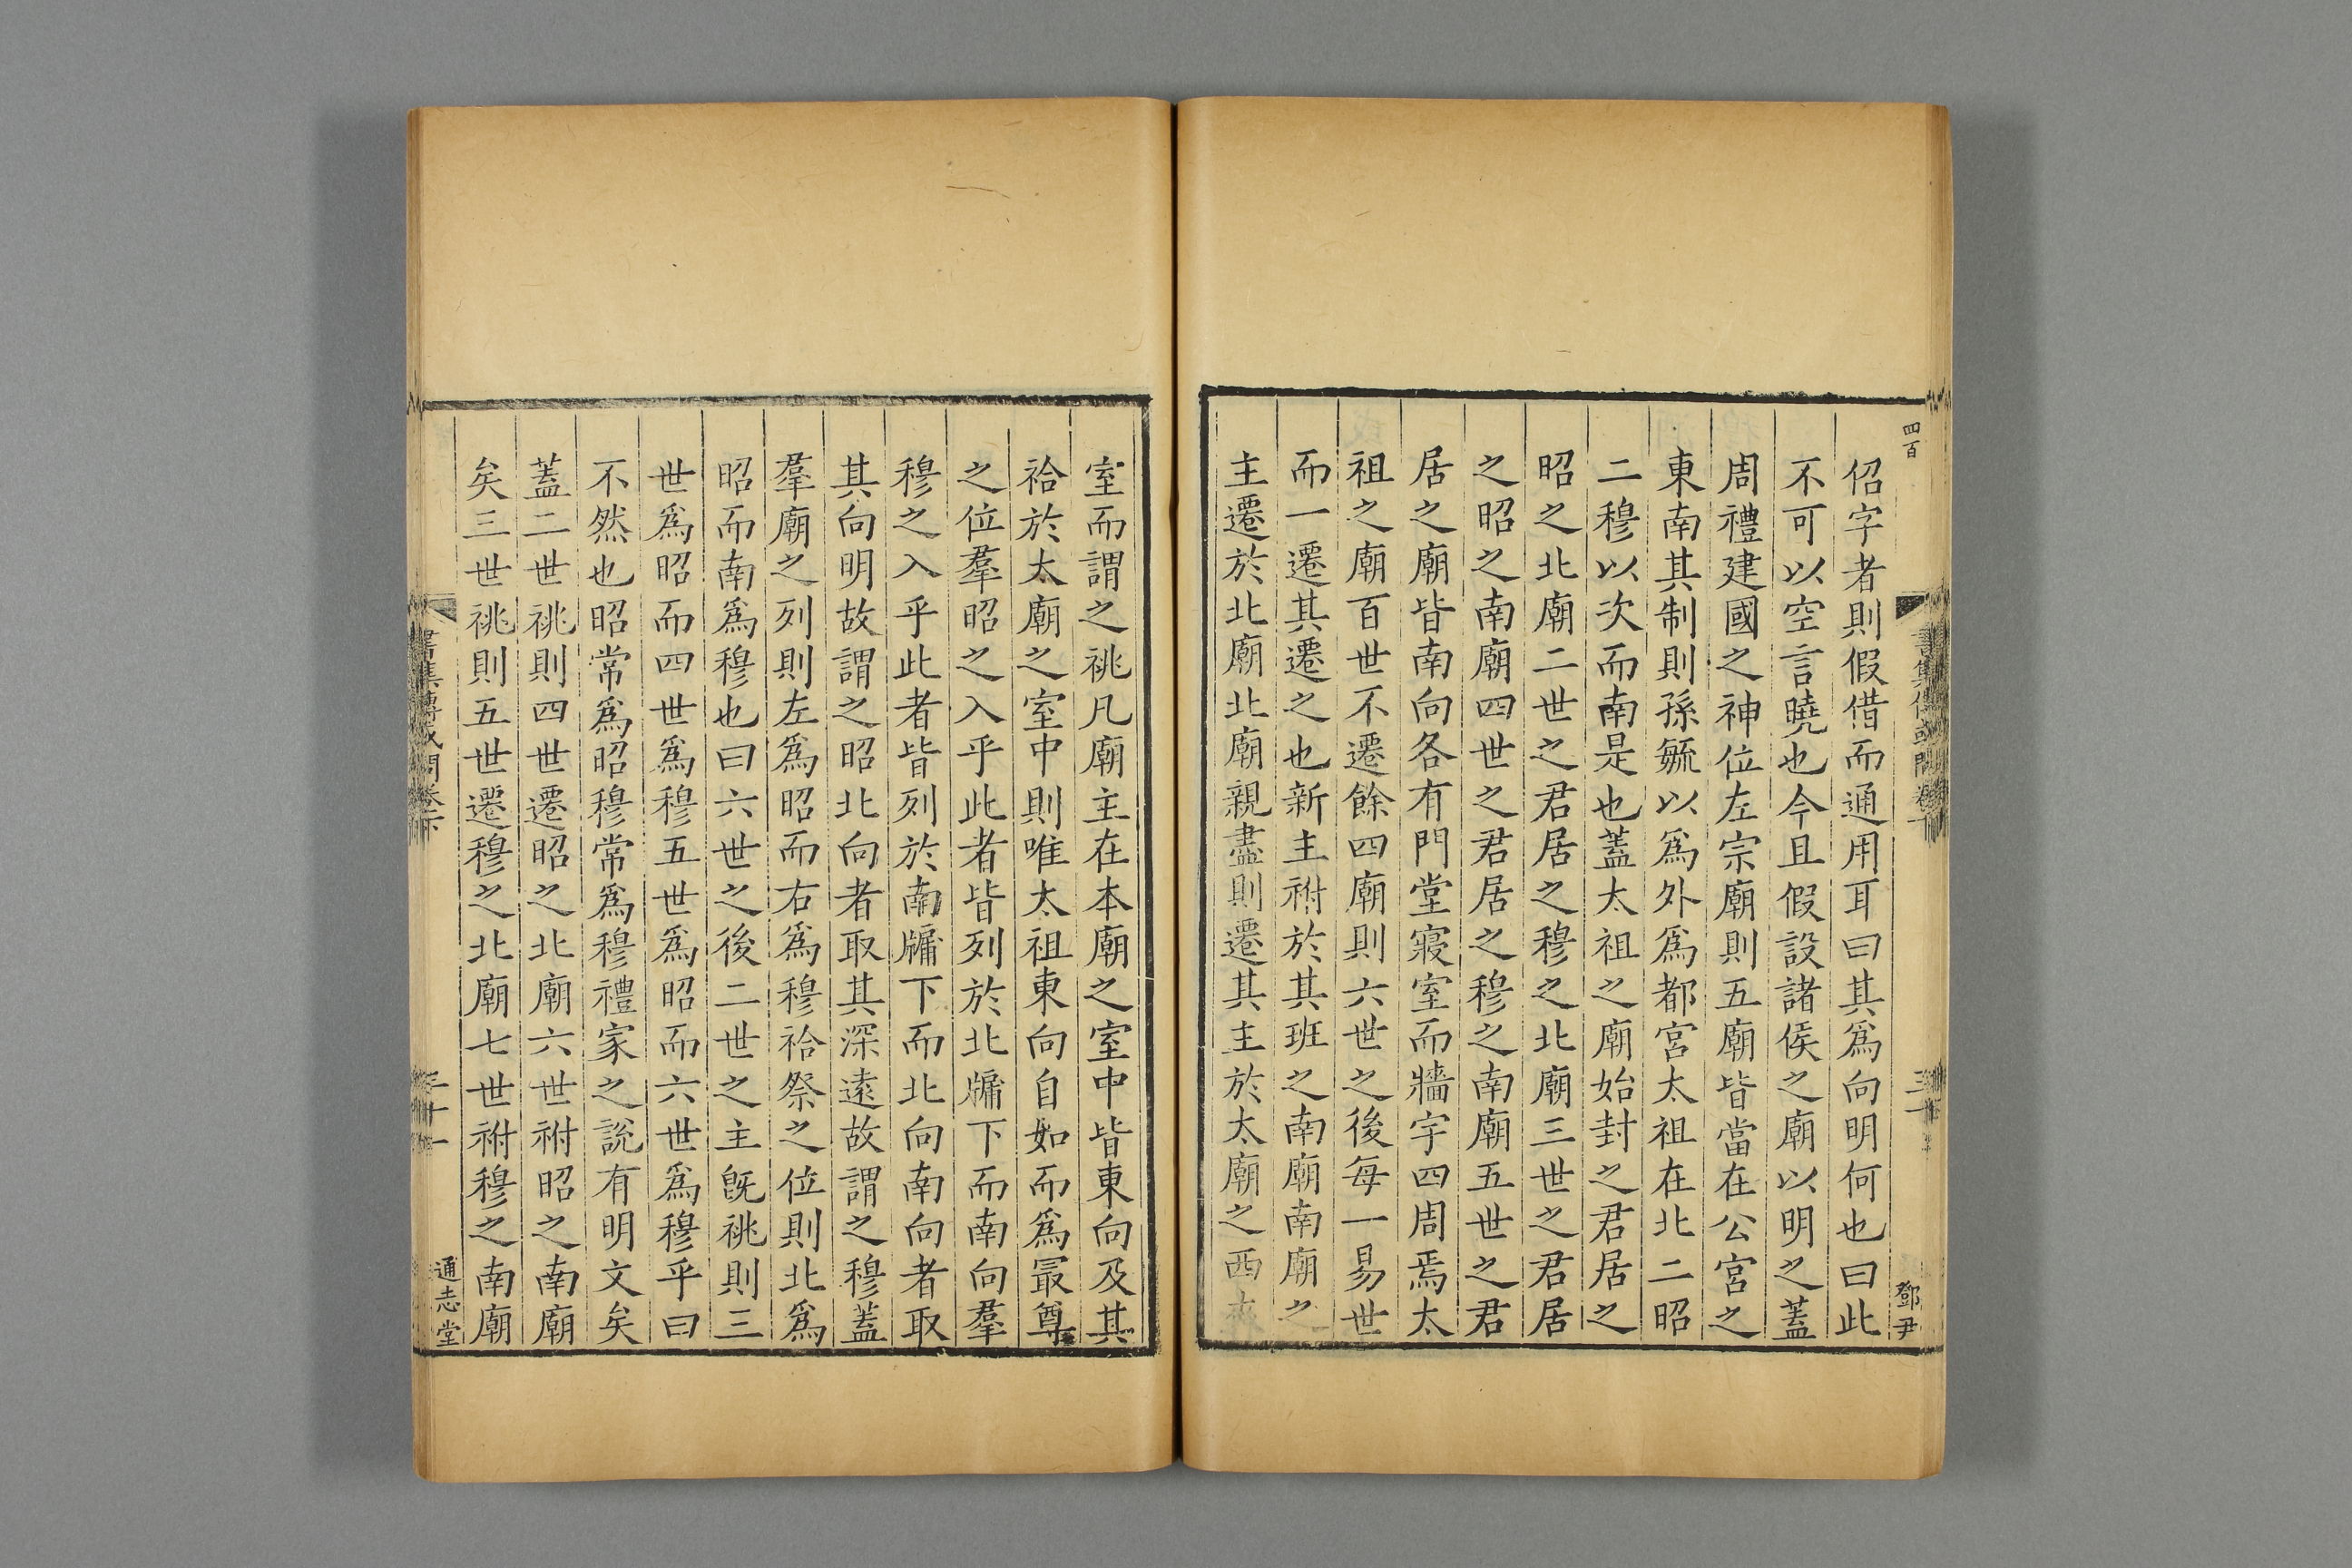 四百
佋字者則假借而通用耳曰其爲向明何也曰此
不可以空言曉也今且假設諸侯之廟以明之蓋
周禮建國之神位左宗廟則五廟皆當在公宮之
東南其制則孫毓以爲外爲都宮太祖在北二昭
二穆以次而南是也蓋太祖之廟始封之君居之
昭之北廟二世之君居之穆之北廟三世之君居
之昭之南廟四世之君居之穆之南廟五世之君
居之廟皆南向各有門堂寢室而牆宇四周焉太
祖之廟百世不遷餘四廟則六世之後每一易世
而一遷其遷之也新主祔於其班之南廟南廟之
主遷於北廟北廟親盡則遷其主於太廟之西夾
鄧尹
室而謂之祧凡廟主在本廟之室中皆東向及其
祫於太廟之室中則唯太祖東向自如而爲最尊
之位羣昭之入乎此者皆列於北牖下而南向羣
穆之入乎此者皆列於南牖下而北向南向者取
其向明故謂之昭北向者取其深遠故謂之穆蓋
羣廟之列則左爲昭而右爲穆祫祭之位則北爲
昭而南爲穆也曰六世之後二世之主旣祧則三
世爲昭而四世爲穆五世爲昭而六世爲穆乎曰
不然也昭常爲昭穆常爲穆禮家之說有明文矣
蓋二世祧則四世遷昭之北廟六世祔昭之南廟
矣三世祧則五世遷穆之北廟七世祔穆之南廟
書集傳或問卷下
三十一
通志堂